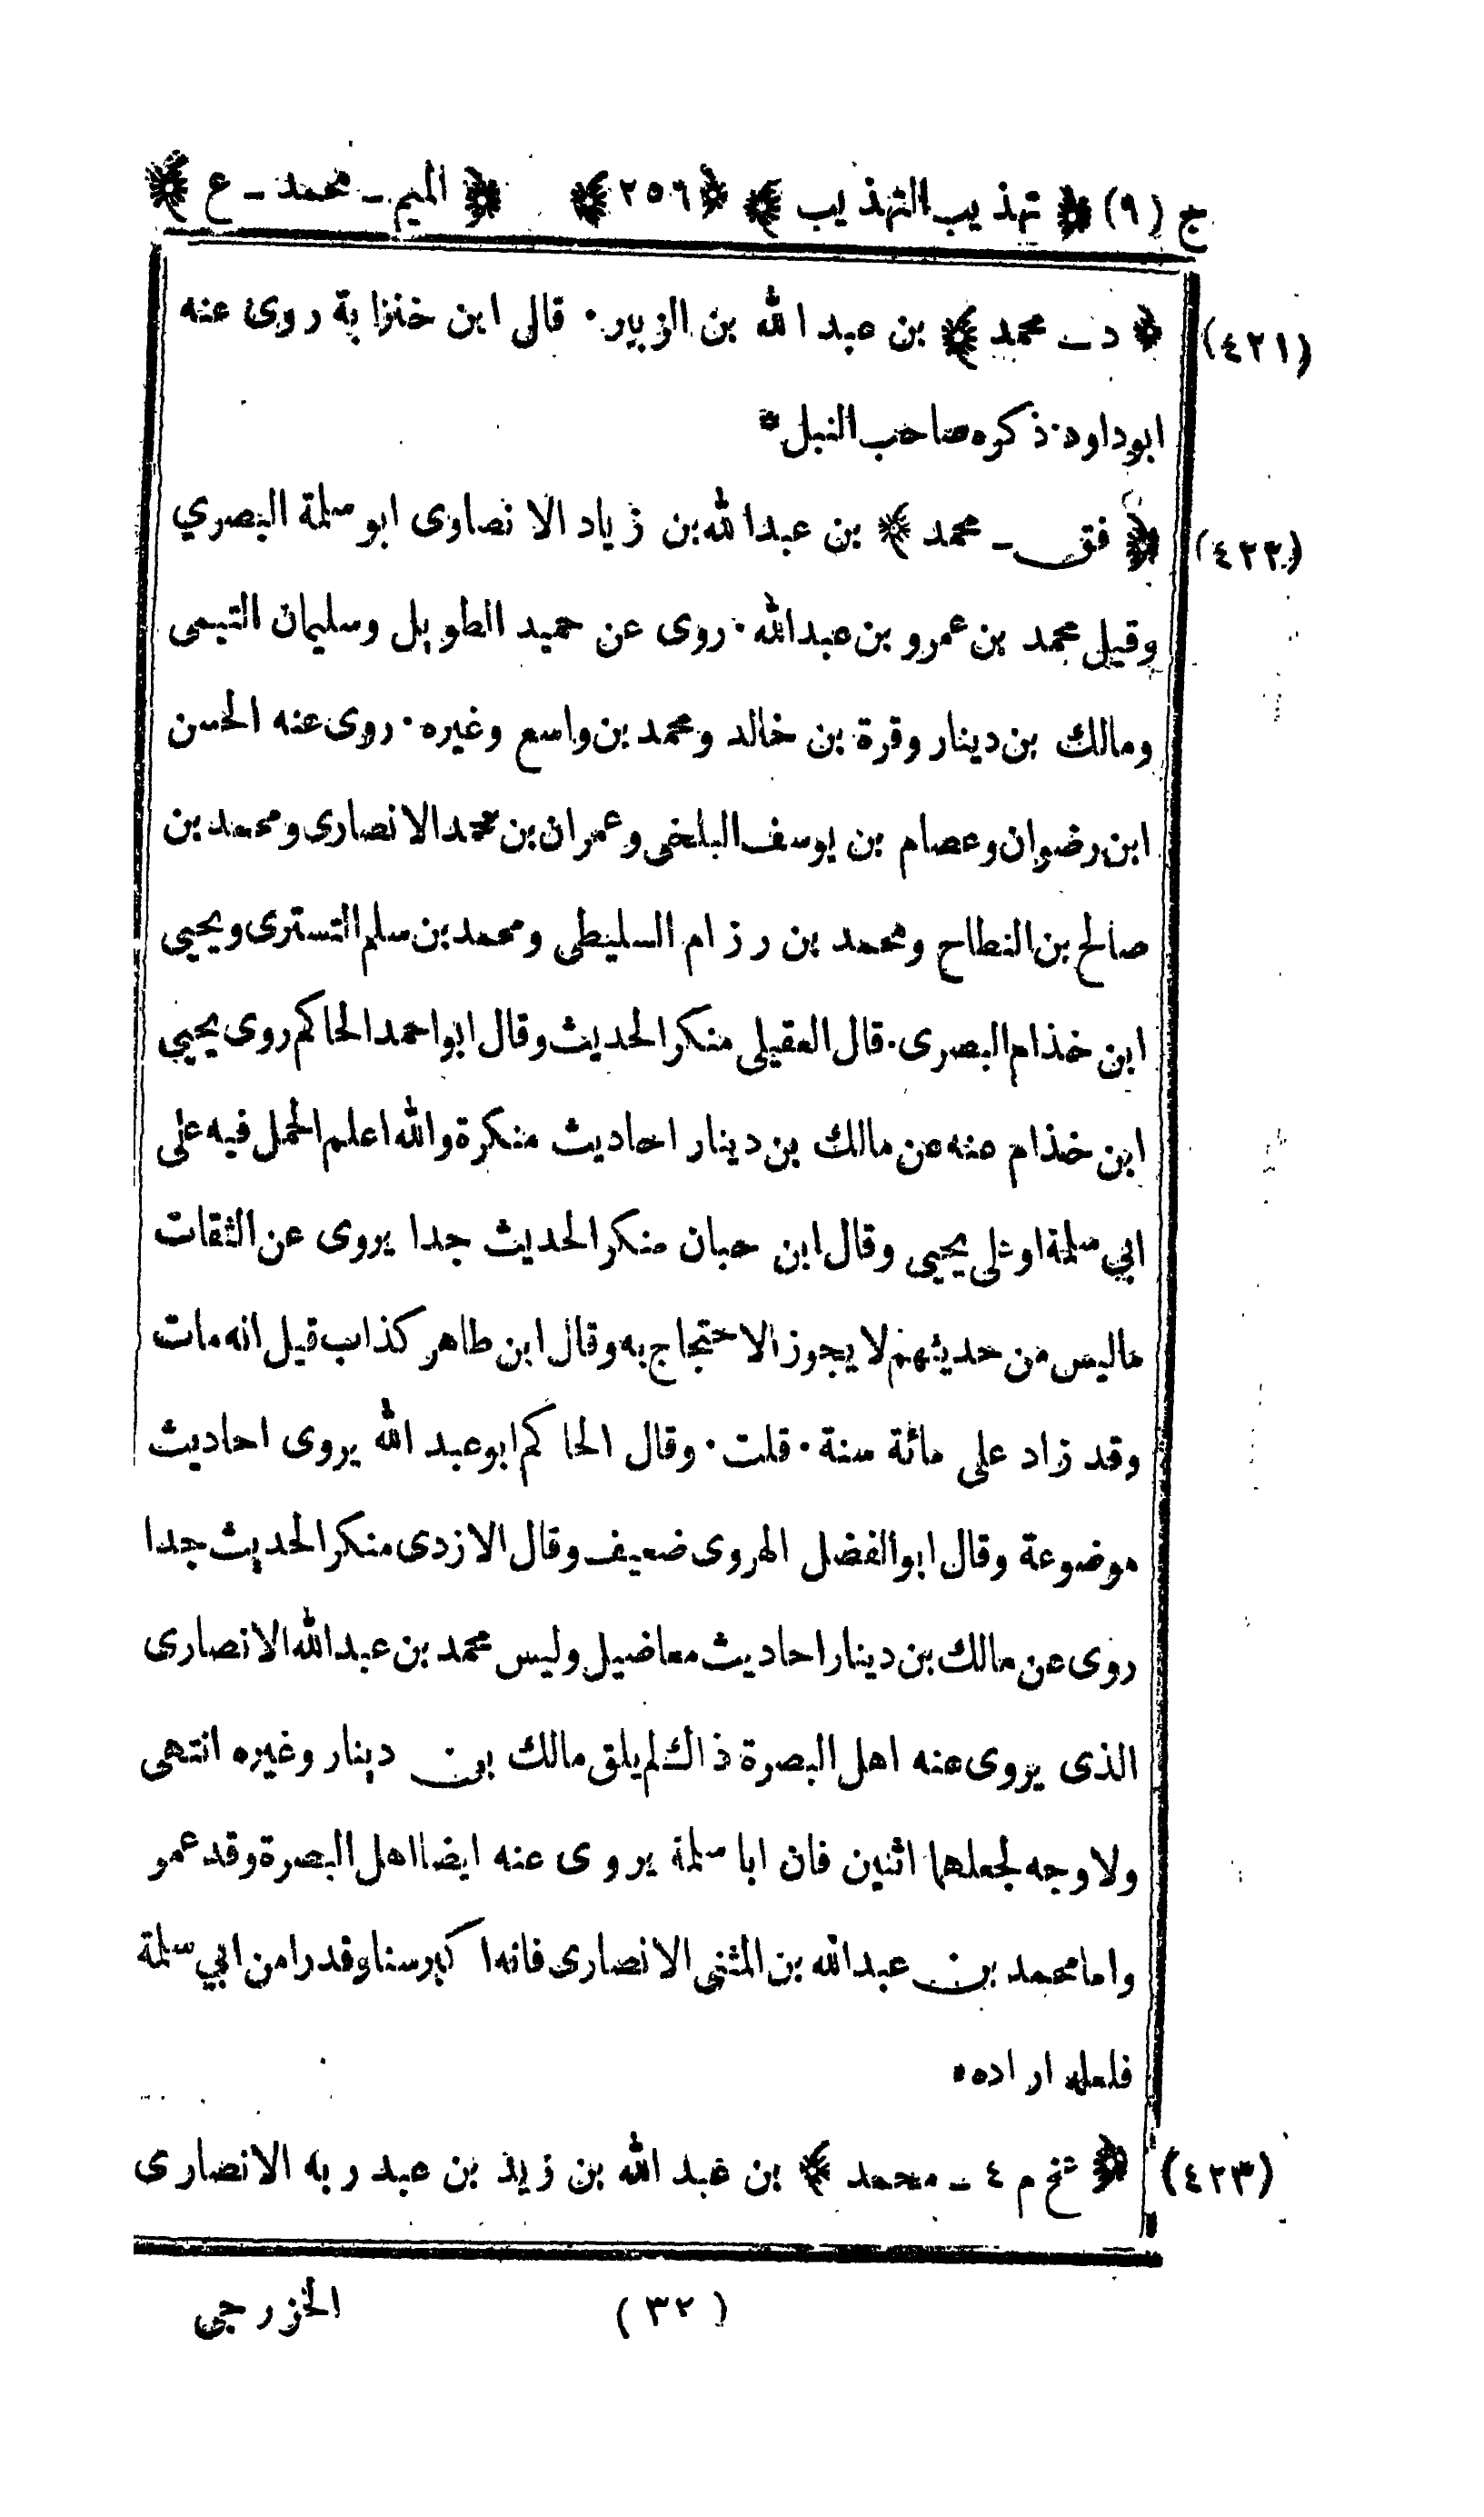 ج (٩) ﴿ تهذيب التهذيب ﴾ ﴿٢٥٦﴾ ﴿ الميم ـ محمد ـ ع ﴾
(٤٢١) ﴿ د ـ محمد ﴾ بن عبد الله بن الزبير· قال ابن خنزابة روى عنه
ابوداود· ذكره صاحب النبل*
(٤٢٢) ﴿ فق ـ محمد ﴾ بن عبدالله بن زياد الانصارى ابو سلمة البصري
وقيل محمد بن عمرو بن عبدالله· روى عن حميد الطويل وسليمان التيمى
ومالك بن دينار وقرة بن خالد ومحمد بن واسع وغيره· روى عنه الحسن
ابن رضوان وعصام بن يوسف البلخى وعمران بن محمد الانصارى ومحمد بن
صالح بن النطاح ومحمد بن رزام السليطى ومحمد بن سلم التسترى ويحيى
ابن خذام البصرى· قال العقيلى منكر الحديث وقال ابواحمد الحاكم روى يحيى
ابن خذام عنه عن مالك بن دينار احاديث منكرة والله اعلم الحمل فيه على
ابي سلمة او على يحيى وقال ابن حبان منكر الحديث جدا يروى عن الثقات
ماليس من حديثهم لا يجوز الاحتجاج به وقال ابن طاهر كذاب قيل انه مات
وقد زاد على مائة سنة· قلت· وقال الحاكم ابوعبد الله يروى احاديث
موضوعة وقال ابوالفضل الهروى ضعيف وقال الازدى منكر الحديث جدا
روى عن مالك بن دينار احاديث معاضيل وليس محمد بن عبدالله الانصارى
الذى يروى عنه اهل البصرة ذاك لم يلق مالك بن دينار وغيره انتهى
ولا وجه لجعلهما اثنين فان ابا سلمة يروى عنه ايضا اهل البصرة وقد عمر
واما محمد بن عبدالله بن المثنى الانصارى فانه اكبر سنا وقدرا من ابي سلمة
فلعله اراده*
(٤٢٣) ﴿ عخ م ٤ ـ محمد ﴾ بن عبد الله بن زيد بن عبد ربه الانصارى
(٣٢) الخزرجى